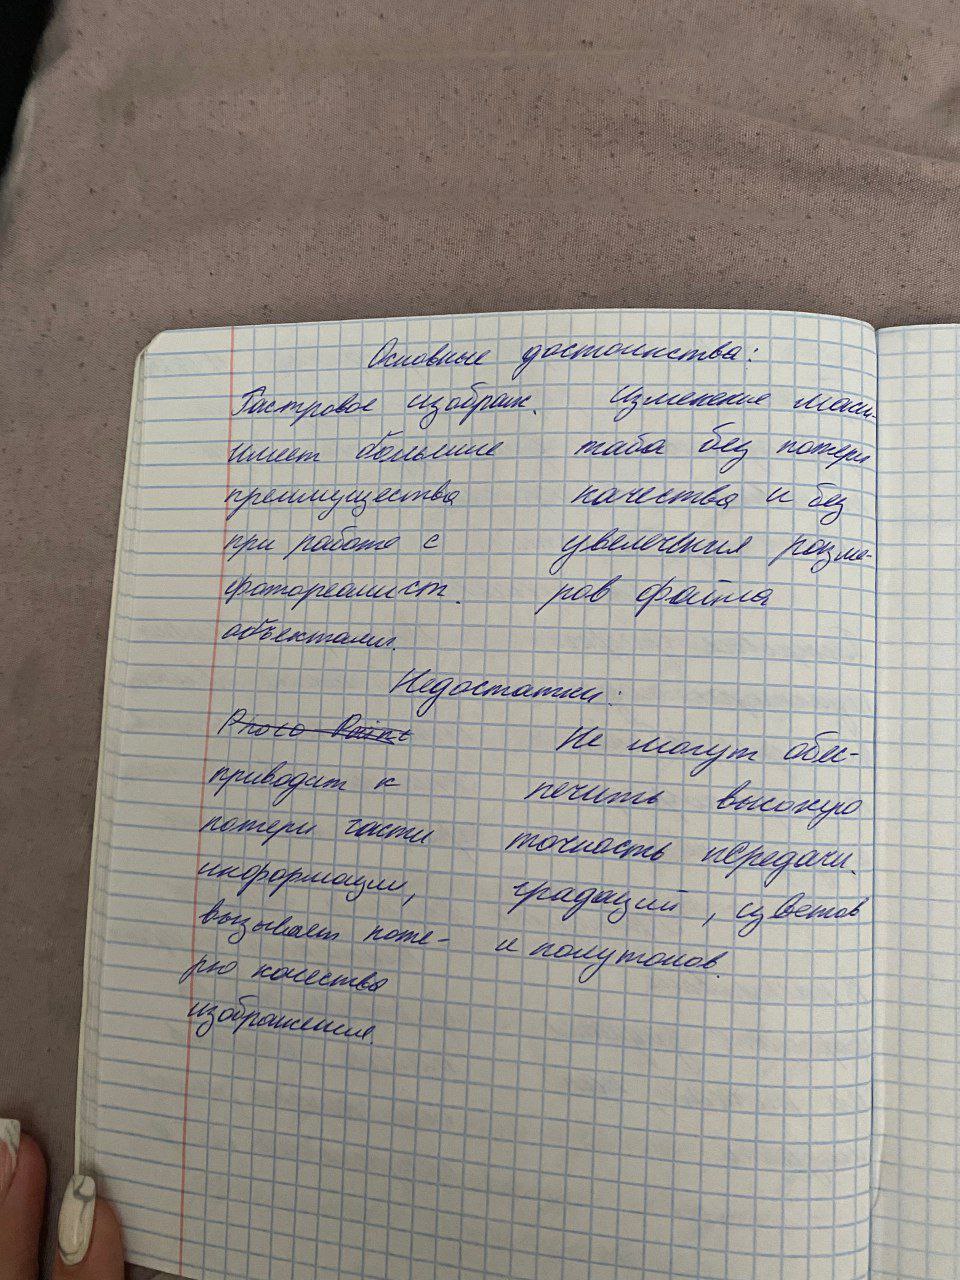 Основные достоинства:
Растровое изображ.
имеет большие
преимущества
при работе с
фотореалист.
объектами.
Изменение масш-
таба без потери
качества и без
увеличения разме-
ров файла
Недостатки:
Photo Paint
приводит к
потери части
информации,
вызывает поте-
рю качества
изображения.
Не могут обес-
печить высокую
точность передачи.
градаций, цветов
и полутонов.